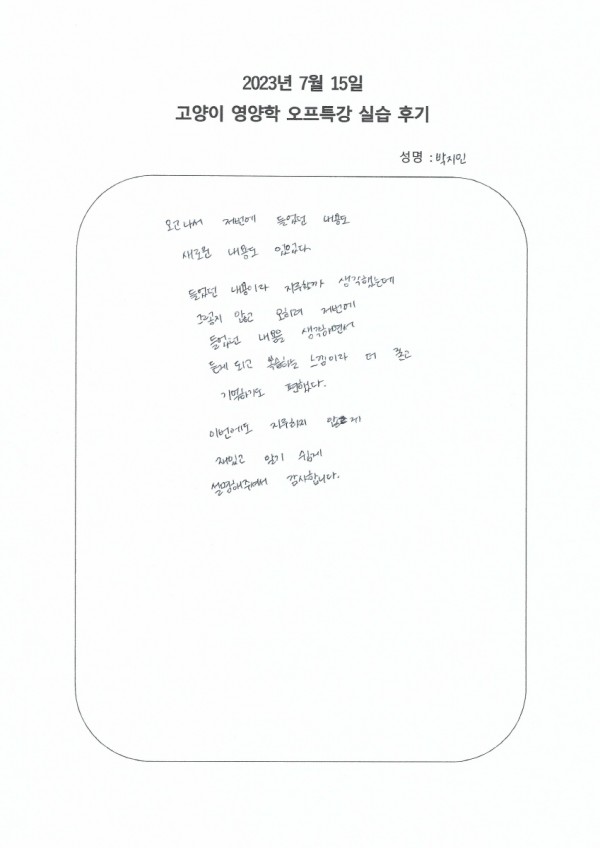 2023년 7월 15일
고양이 영양학 오프특강 실습 후기
성명 : 박지인
오고나서 저번에 들었던 내용도
새로운 내용도 있었다.
들었던 내용이라 지루할까 생각했는데
그렇지 않고 오히려 저번에
들었던 내용을 생각하면서
듣게 되고 복습하는 느낌이라 더 좋고
기억하기도 편했다.
이번에도 지루하지 않게
재밌고 알기 쉽게
설명해주셔서 감사합니다.